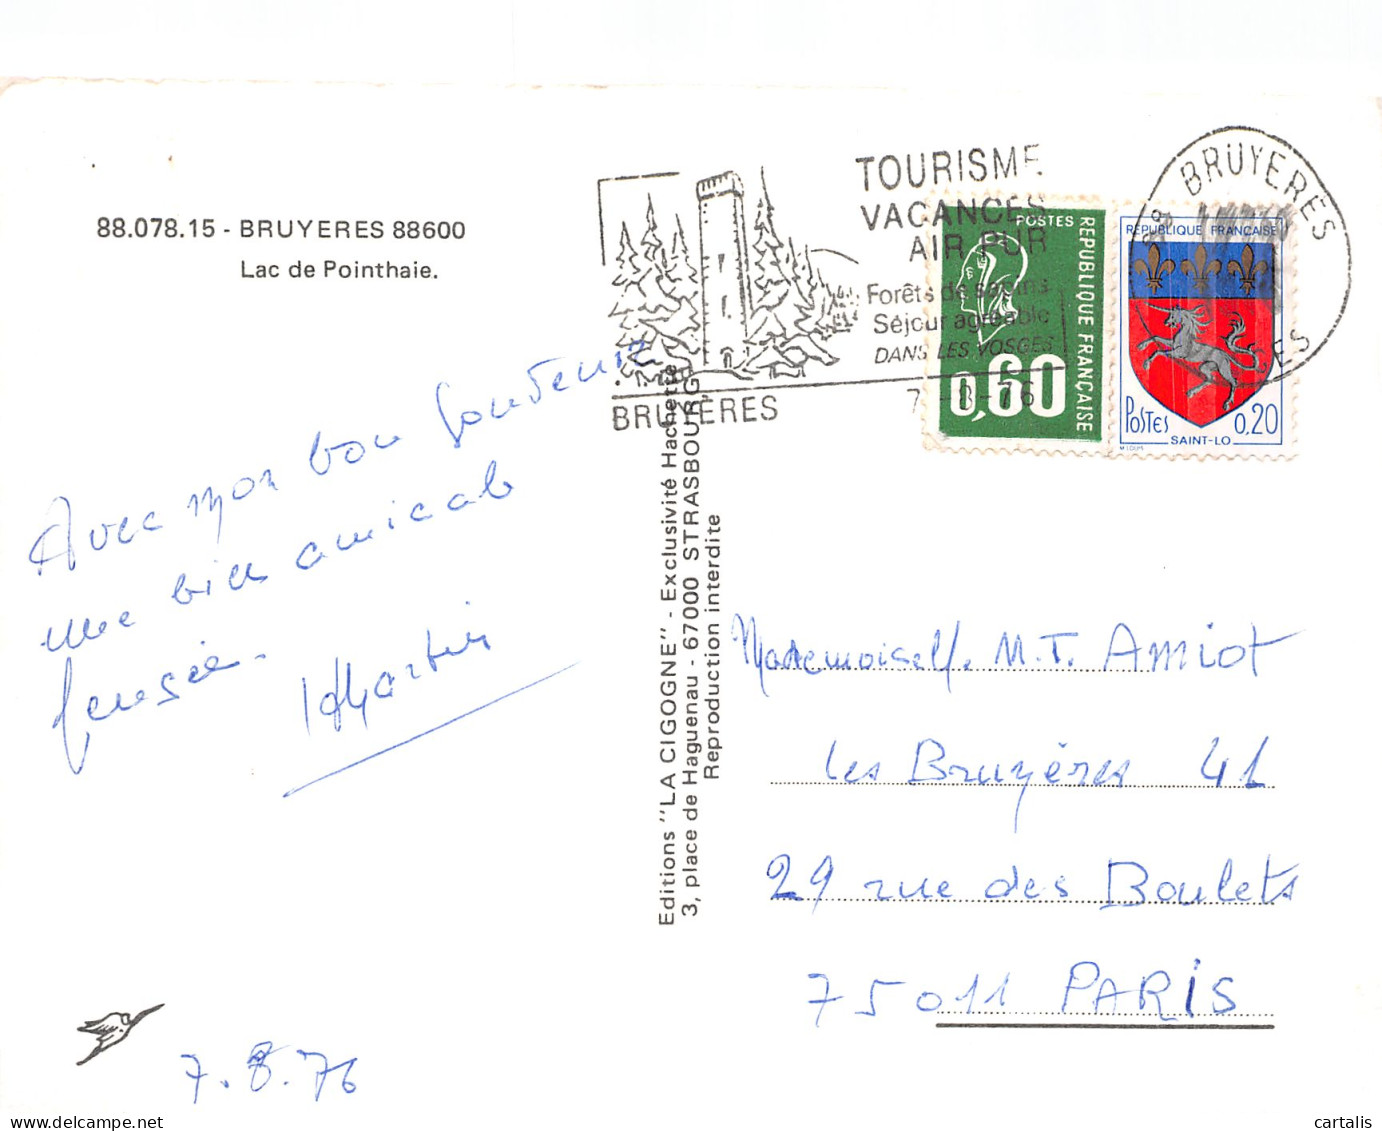 88.078.15 - BRUYERES 88600
Lac de Pointhaie.
TOURISME
VACANCES
AIR PUR
Forêts de sapins
Séjour agréable
DANS LES VOSGES
BRUYERES
7-8-76
BRUYERES
POSTES
REPUBLIQUE FRANÇAISE
0,60
REPUBLIQUE FRANÇAISE
POSTES 0,20
SAINT-LO
Avec mon bon souvenir
une bien amicale
pensée.
Martin
7.8.76
Editions "LA CIGOGNE" - Exclusivité Hachette
3, place de Haguenau - 67000 STRASBOURG
Reproduction interdite
Mademoiselle M.T. Amiot
Les Bruyères 41
29 rue des Boulets
75011 PARIS
cartalis